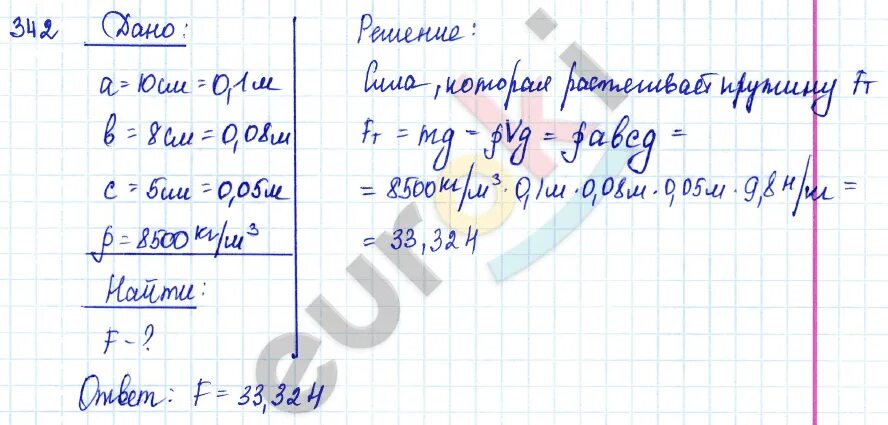 342 Дано:
a = 10 см = 0,1 м
b = 8 см = 0,08 м
c = 5 см = 0,05 м
ρ = 8500 кг/м³
Найти:
F - ?
Решение:
Сила, которая растягивает пружину Fт
Fт = mg = ρVg = ρabcg =
= 8500 кг/м³ · 0,1 м · 0,08 м · 0,05 м · 9,8 н/м =
= 33,32 Н
Ответ: F = 33,32 Н
euroki